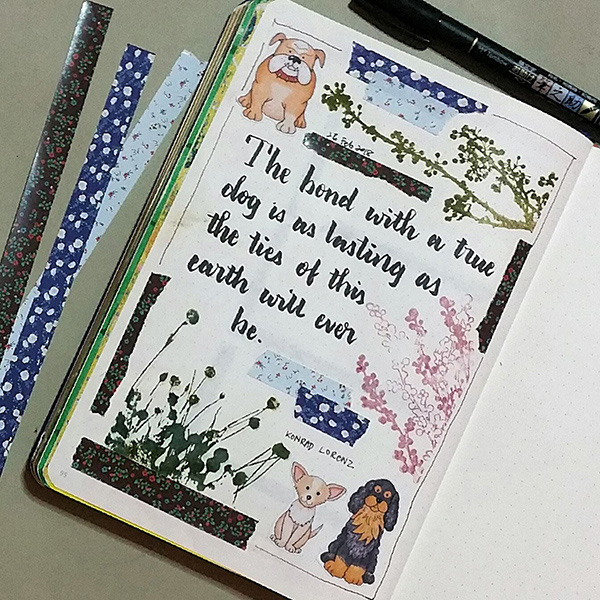 28 Feb 2018
The bond with a true
dog is as lasting as
the ties of this
earth will ever
be.
KONRAD LORENZ